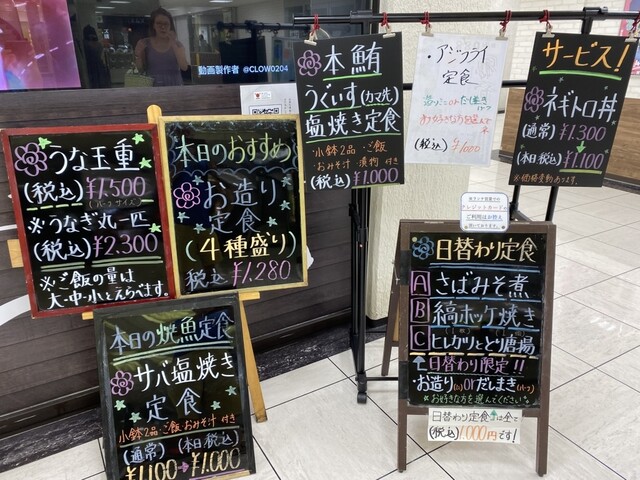 動画製作者 @CLOW0204
うな玉重
(税込)¥1,500
(ハーフサイズ)
※うなぎ丸一匹
(税込)¥2,300
※ご飯の量は
大・中・小とえらべます。
本日のおすすめ
お造り
定食
(4種盛り)
税込 ¥1,280
本日の焼魚定食
サバ塩焼き
定食
小鉢2品・ご飯・おみそ汁 付き
(通常) (本日税込)
¥1,100→¥1,000
本鮪
うぐいす(カマ先)
塩焼き定食
・小鉢2品・ご飯
・おみそ汁 漬物 付き
(税込)¥1,000
・アジフライ
定食
(税込) ¥1,000
サービス!
ネギトロ丼
(通常) ¥1,300
(本日税込) ¥1,100
※価格変動あります。
クレジットカードの
ご利用はお控え
日替わり定食
A さばみそ煮
B 縞ホッケ焼き
C ヒレカツととり唐揚
日替わり限定!!
お造り(小)orだしまき(ハーフ)
※お好きな方を選んでください
日替わり定食は全て
(税込)1,000円です!